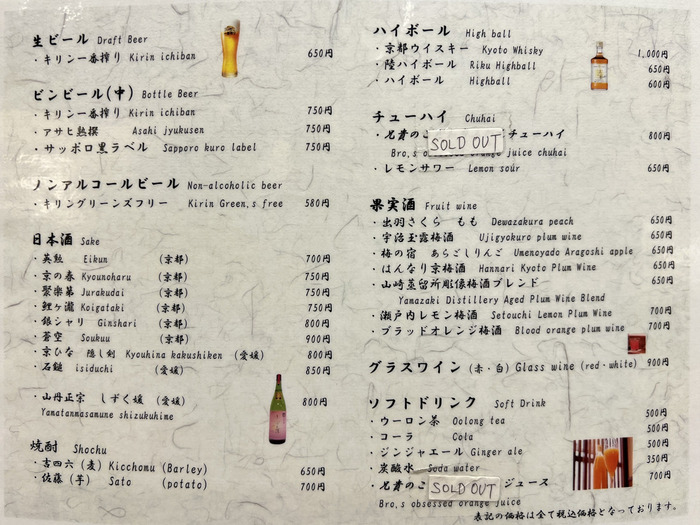 生ビール Draft Beer
・キリン一番搾り Kirin ichiban 650円
ビンビール(中) Bottle Beer
・キリン一番搾り Kirin ichiban 750円
・アサヒ熟撰 Asahi jyukusen 750円
・サッポロ黒ラベル Sapporo kuro label 750円
ノンアルコールビール Non-alcoholic beer
・キリングリーンズフリー Kirin Green,s free 580円
日本酒 Sake
・英勲 Eikun (京都) 700円
・京の春 Kyounoharu (京都) 750円
・聚楽第 Jurakudai (京都) 750円
・鯉ヶ瀧 Koigataki (京都) 750円
・銀シャリ Ginshari (京都) 800円
・蒼空 Soukuu (京都) 900円
・京ひな 隠し剣 Kyouhina kakushiken (愛媛) 800円
・石鎚 isiduchi (愛媛) 850円
・山丹正宗 しずく媛 (愛媛) 800円
Yamatanmasamune shizukuhime
焼酎 Shochu
・吉四六 (麦) Kicchomu (Barley) 650円
・佐藤 (芋) Sato (potato) 700円
ハイボール High ball
・京都ウイスキー Kyoto Whisky 1,000円
・陸ハイボール Riku Highball 650円
・ハイボール Highball 600円
チューハイ Chuhai
・兄者のこ SOLD OUT チューハイ 800円
Bro,s juice chuhai
・レモンサワー Lemon sour 650円
果実酒 Fruit wine
・出羽さくら もも Dewazakura peach 650円
・宇治玉露梅酒 Ujigyokuro plum wine 650円
・梅の宿 あらごしりんご Umenoyado Aragoshi apple 650円
・はんなり京梅酒 Hannari Kyoto Plum Wine 650円
・山崎蒸留所彫像梅酒ブレンド 650円
Yamazaki Distillery Aged Plum Wine Blend
・瀬戸内レモン梅酒 Setouchi Lemon Plum Wine 700円
・ブラッドオレンジ梅酒 Blood orange plum wine 700円
グラスワイン (赤・白) Glass wine (red・white) 900円
ソフトドリンク Soft Drink
・ウーロン茶 Oolong tea 500円
・コーラ Cola 500円
・ジンジャエール Ginger ale 500円
・炭酸水 Soda water 350円
・兄者のこ SOLD OUT ジュース 700円
Bro,s obsessed orange juice
表記の価格は全て税込価格となっております。